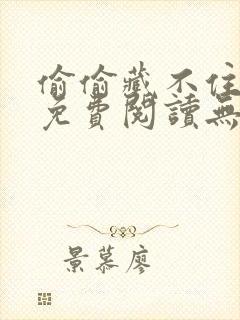 偷偷藏不住
免費閱讀無
景慕廖